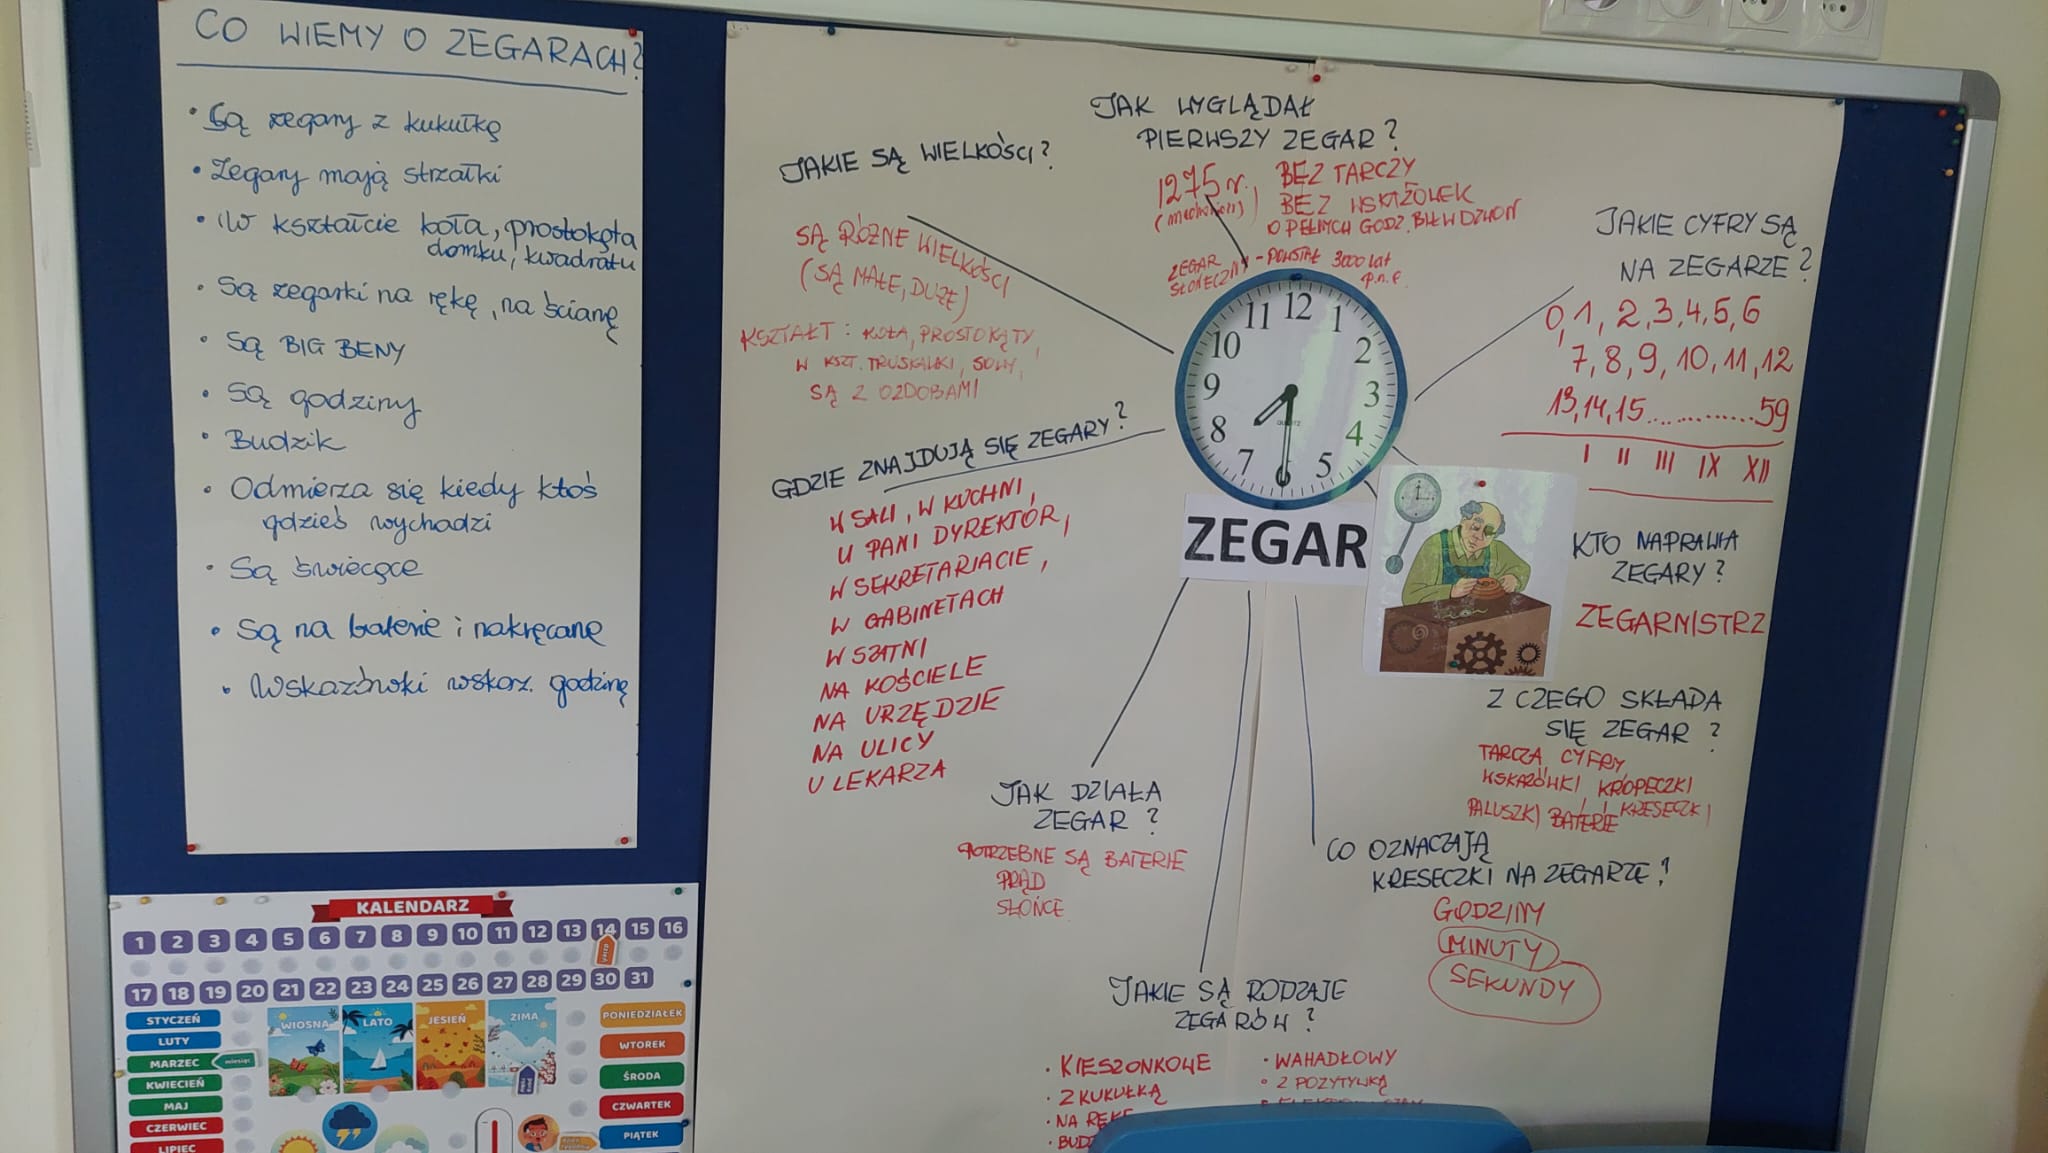 CO WIEMY O ZEGARACH?
• Są zegary z kukułkę
• Zegary mają strzałki
• W kształcie koła, prostokąta
domku, kwadratu
• Są zegarki na rękę, na ścianę
• Są BIG BENY
• Są godziny
• Budzik
• Odmierza się kiedy ktoś
gdzieś wychodzi
• Są świecące
• Są na baterie i nakręcane
• Wskazówki wskaz. godzinę
JAK WYGLĄDAŁ
PIERWSZY ZEGAR?
1275 r.
BEZ TARCZY
BEZ WSKAZÓWEK
O PEŁNYCH GODZ. BIŁ W DZWON
ZEGAR
SŁONECZNY - POWSTAŁ 3000 lat
p.n.e.
JAKIE SĄ WIELKOŚCI?
SĄ RÓŻNE WIELKOŚCI
(SĄ MAŁE, DUŻE)
KSZTAŁT: KOŁA, PROSTOKĄTY,
W KSZT. TRUSKAWKI, SOWY,
SĄ Z OZDOBAMI
JAKIE CYFRY SĄ
NA ZEGARZE?
0, 1, 2, 3, 4, 5, 6
7, 8, 9, 10, 11, 12
13, 14, 15............59
I II III IX XII
12
1
2
3
4
5
6
7
8
9
10
11
QUARTZ
ZEGAR
GDZIE ZNAJDUJĄ SIĘ ZEGARY?
W SALI, W KUCHNI,
U PANI DYREKTOR,
W SEKRETARIACIE,
W GABINETACH
W SZATNI
NA KOŚCIELE
NA URZĘDZIE
NA ULICY
U LEKARZA
KTO NAPRAWIA
ZEGARY?
ZEGARMISTRZ
Z CZEGO SKŁADA
SIĘ ZEGAR?
TARCZA CYFRY
WSKAZÓWKI KROPECZKI
PALUSZKI BATERIE KRESECZKI
JAK DZIAŁA
ZEGAR?
POTRZEBNE SĄ BATERIE
PRĄD
SŁOŃCE
CO OZNACZAJĄ
KRESECZKI NA ZEGARZE?
GODZINY
MINUTY
SEKUNDY
JAKIE SĄ RODZAJE
ZEGARÓW?
• KIESZONKOWE
• Z KUKUŁKĄ
• NA RĘKĘ
• WAHADŁOWY
• Z POZYTYWKĄ
KALENDARZ
1 2 3 4 5 6 7 8 9 10 11 12 13 14 15 16
17 18 19 20 21 22 23 24 25 26 27 28 29 30 31
STYCZEŃ
LUTY
MARZEC
miesiąc
KWIECIEŃ
MAJ
CZERWIEC
LIPIEC
WIOSNA
LATO
JESIEŃ
ZIMA
PONIEDZIAŁEK
WTOREK
ŚRODA
CZWARTEK
PIĄTEK